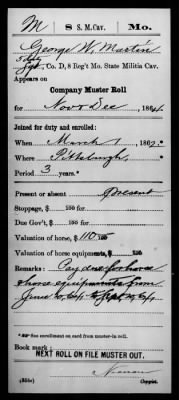 M 8 S. M. Cav. Mo.
George W. Martin
Co. D, 8 Reg't Mo. State Militia Cav.
Appears on
Company Muster Roll
for Nov & Dec, 1864.
Joined for duty and enrolled:
When March 1, 1862.*
Where Pittsburgh,
Period 3 years.*
Present or absent Present
Stoppage, $ 100 for
Due Gov't, $ 100 for
Valuation of horse, $ 110 100
Valuation of horse equipments, $ 100
Remarks: Pay due for horse
& horse equipments from
June 30, 64, to Sept 14, 64,
*See enrollment on card from muster-in roll.
Book mark:
NEXT ROLL ON FILE MUSTER OUT.
(858c) Copyist.